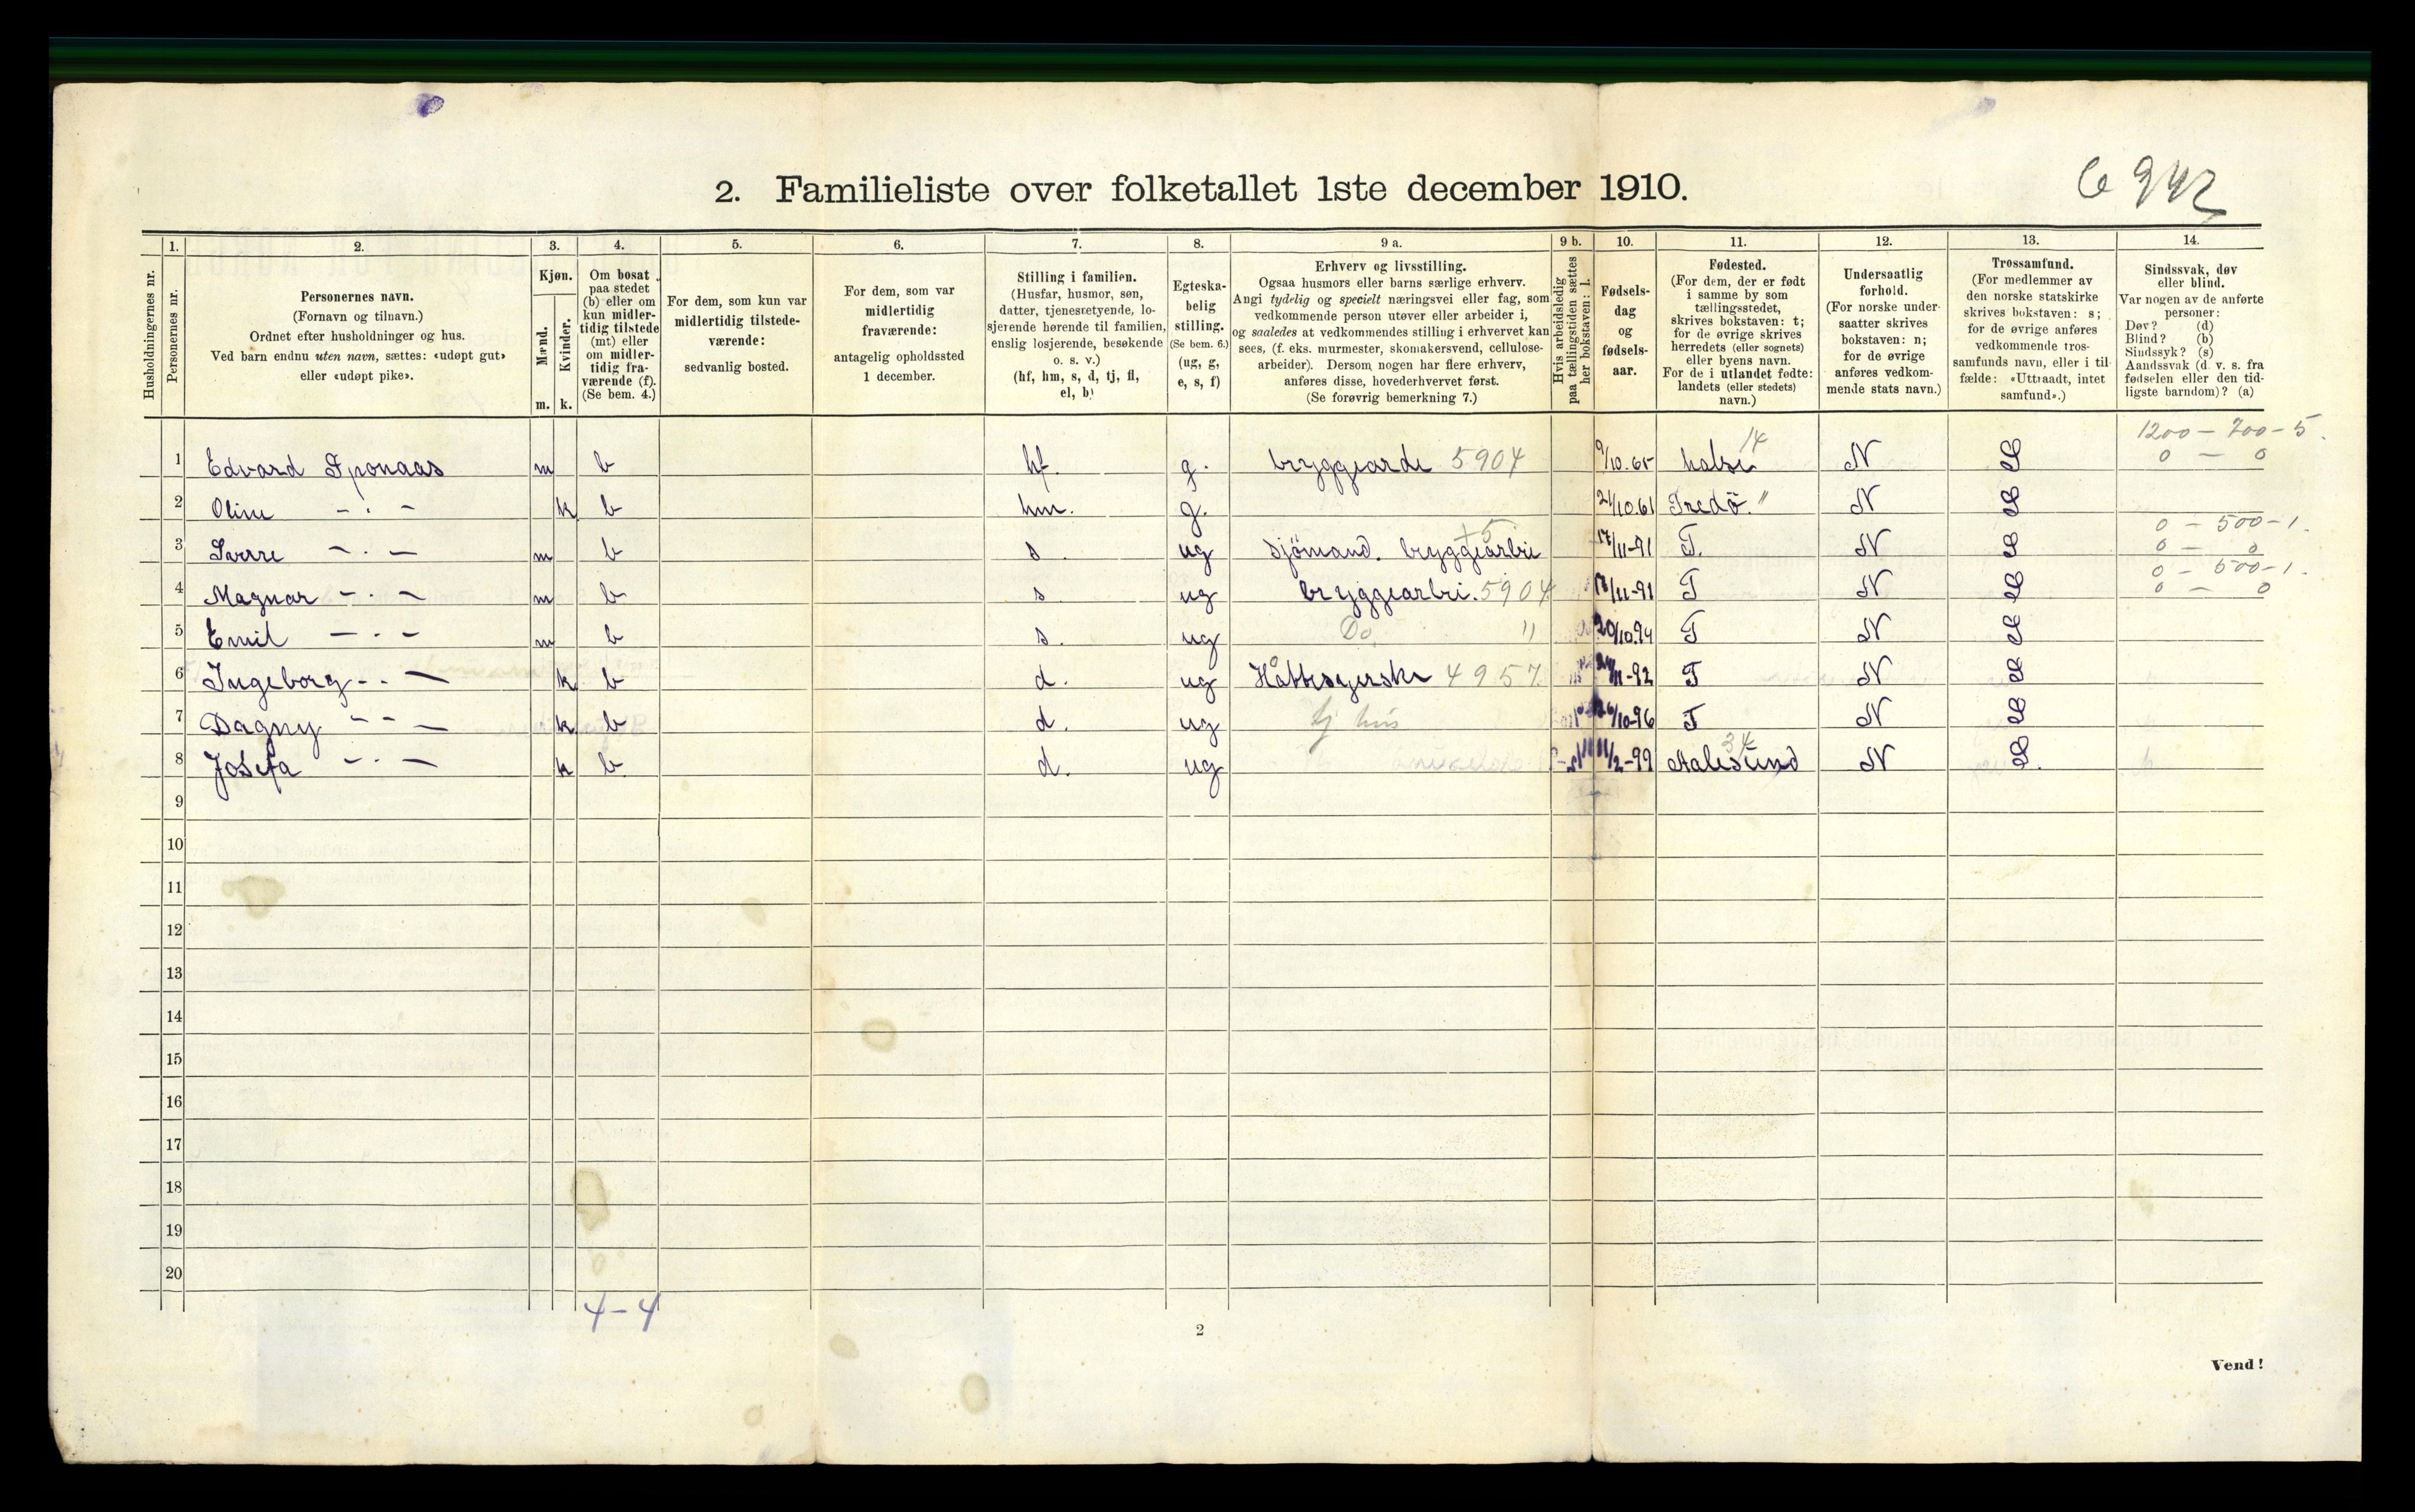 6942
2. Familieliste over folketallet 1ste december 1910.
Husholdningernes nr.
1.
Personernes nr.
2.
Personernes navn.
(Fornavn og tilnavn.)
Ordnet efter husholdninger og hus.
Ved barn endnu uten navn, sættes: «udøpt gut»
eller «udøpt pike».
3.
Kjøn.
Mænd.
Kvinder.
m.
k.
4.
Om bosat
paa stedet
(b) eller om
kun midler-
tidig tilstede
(mt) eller
om midler-
tidig fra-
værende (f).
(Se bem. 4.)
5.
For dem, som kun var
midlertidig tilstede-
værende:
sedvanlig bosted.
6.
For dem, som var
midlertidig
fraværende:
antagelig opholdssted
1 december.
7.
Stilling i familien.
(Husfar, husmor, søn,
datter, tjenestetyende, lo-
sjerende hørende til familien,
enslig losjerende, besøkende
o. s. v.)
(hf, hm, s, d, tj, fl,
el, b)
8.
Egteska-
belig
stilling.
(Se bem. 6.)
(ug, g,
e, s, f)
9 a.
Erhverv og livsstilling.
Ogsaa husmors eller barns særlige erhverv.
Angi tydelig og specielt næringsvei eller fag, som
vedkommende person utøver eller arbeider i,
og saaledes at vedkommendes stilling i erhvervet kan
sees, (f. eks. murmester, skomakersvend, cellulose-
arbeider). Dersom nogen har flere erhverv,
anføres disse, hovederhvervet først.
(Se forøvrig bemerkning 7.)
9 b.
Hvis arbeidsledig
paa tællingstiden sættes
her bokstaven: l.
10.
Fødsels-
dag
og
fødsels-
aar.
11.
Fødested.
(For dem, der er født
i samme by som
tællingsstedet,
skrives bokstaven: t;
for de øvrige skrives
herredets (eller sognets)
eller byens navn.
For de i utlandet fødte:
landets (eller stedets)
navn.)
12.
Undersaatlig
forhold.
(For norske under-
saatter skrives
bokstaven: n;
for de øvrige
anføres vedkom-
mende stats navn.)
13.
Trossamfund.
(For medlemmer av
den norske statskirke
skrives bokstaven: s;
for de øvrige anføres
vedkommende tros-
samfunds navn, eller i til-
fælde: «Uttraadt, intet
samfund».)
14.
Sindssvak, døv
eller blind.
Var nogen av de anførte
personer:
Døv? (d)
Blind? (b)
Sindssyk? (s)
Aandssvak (d. v. s. fra
fødselen eller den tid-
ligste barndom)? (a)
14 1200 - 700 - 5.
1 Edvard Sponaas m b hf. g. bryggearde 5904 9/10.65 halse N S 0 - 0
2 Oline - . - k b hm. g. 21/10.61 Fredö. " N S
+5 0 - 500 - 1.
3 Sverre - . - m b s. ug sjömand. bryggearbei 17/11-91 T. N S 0 - 0
0 - 500 - 1.
4 Magnar - . - m b s ug bryggearbei. 5904 17/11-91 T N S 0 - 0
5 Emil - . - m b s. ug Do " 20/10.94 T N S
6 Ingeborg - . - k b d. ug Hattesyerske 4957 /11-92 T N S
7 Dagny - - - k b d. ug tj hus /10-96 T N S
34
8 Josefa - . - k b d. ug 11/2-99 Aalesund N S.
9
10
11
12
13
14
15
16
17
18
19
20
4-4
2
Vend!